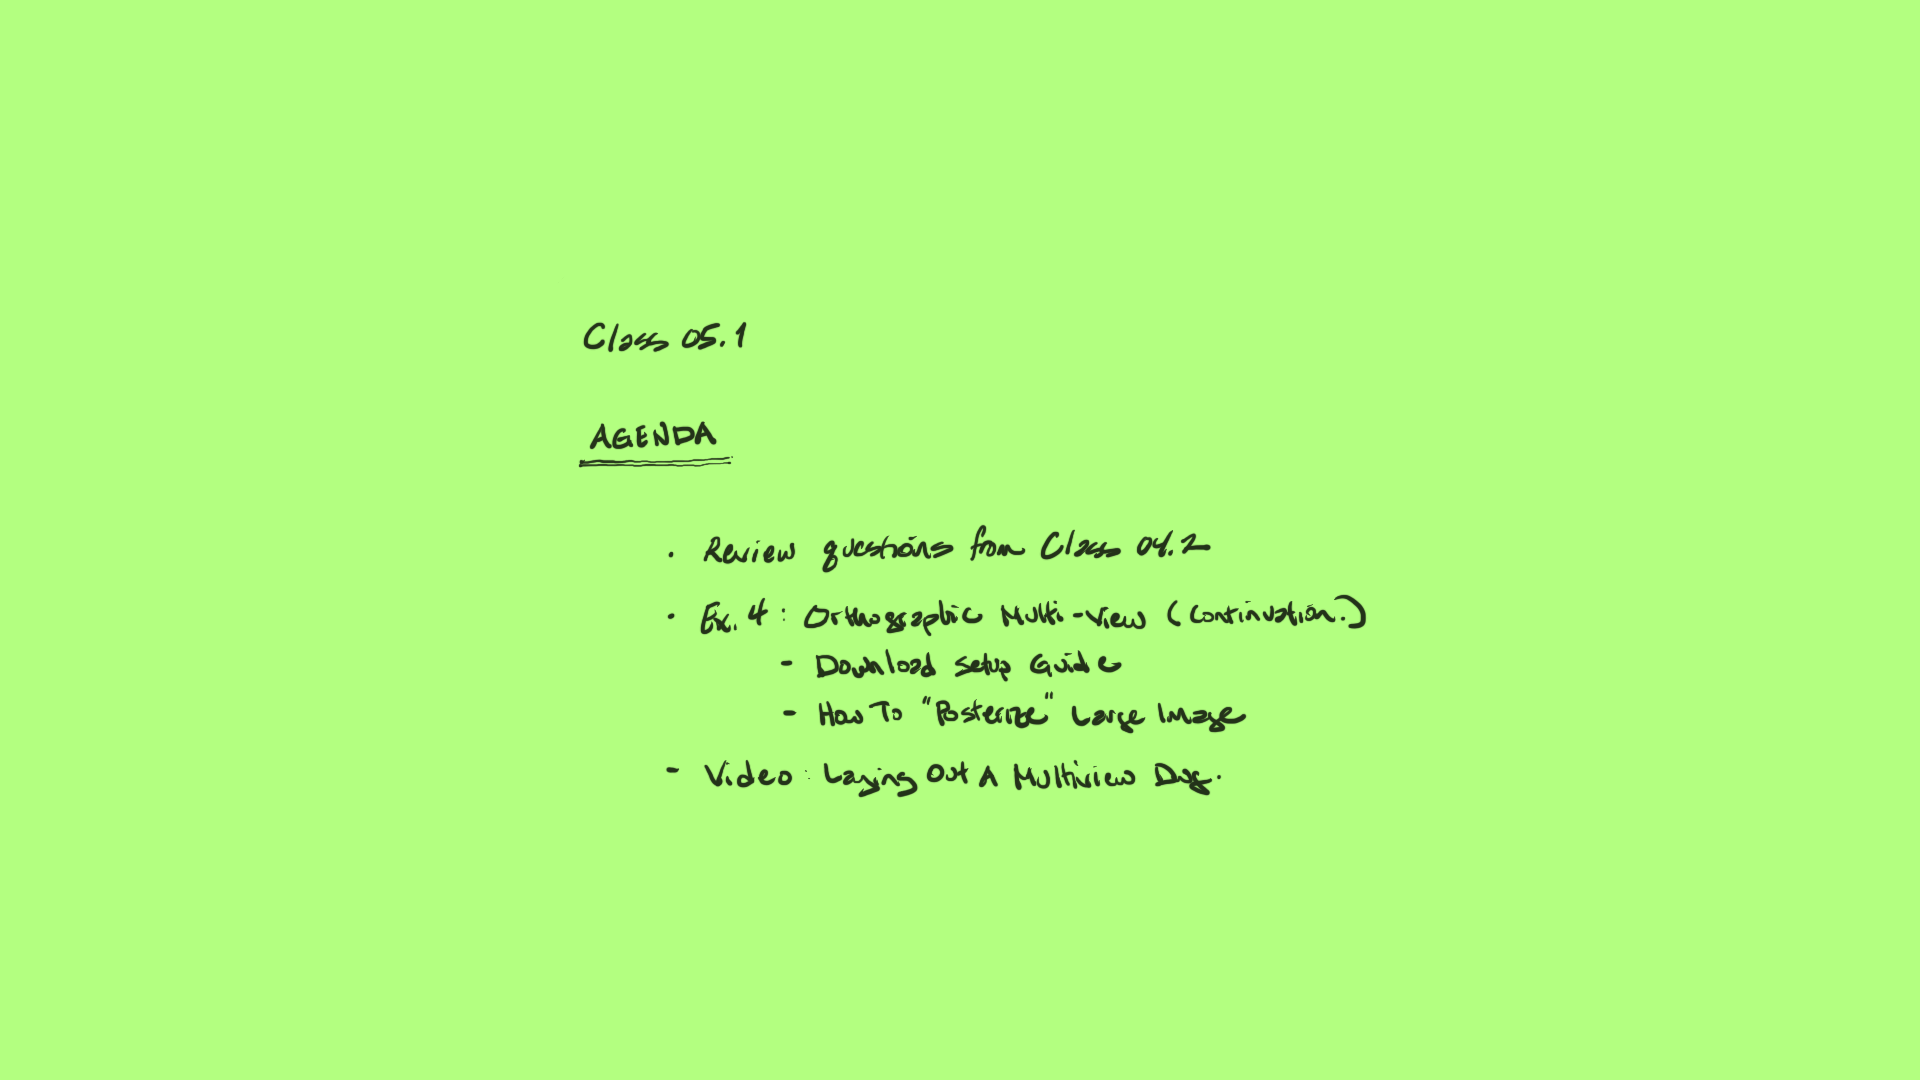 Class 05.1
AGENDA
· Review questions from Class 04.2
· Ex. 4 : Orthographic Multi-View (Continuation.)
- Download Setup Guide
- How To "Posterize" Large Image
- Video : Laying Out A Multiview Dwg.